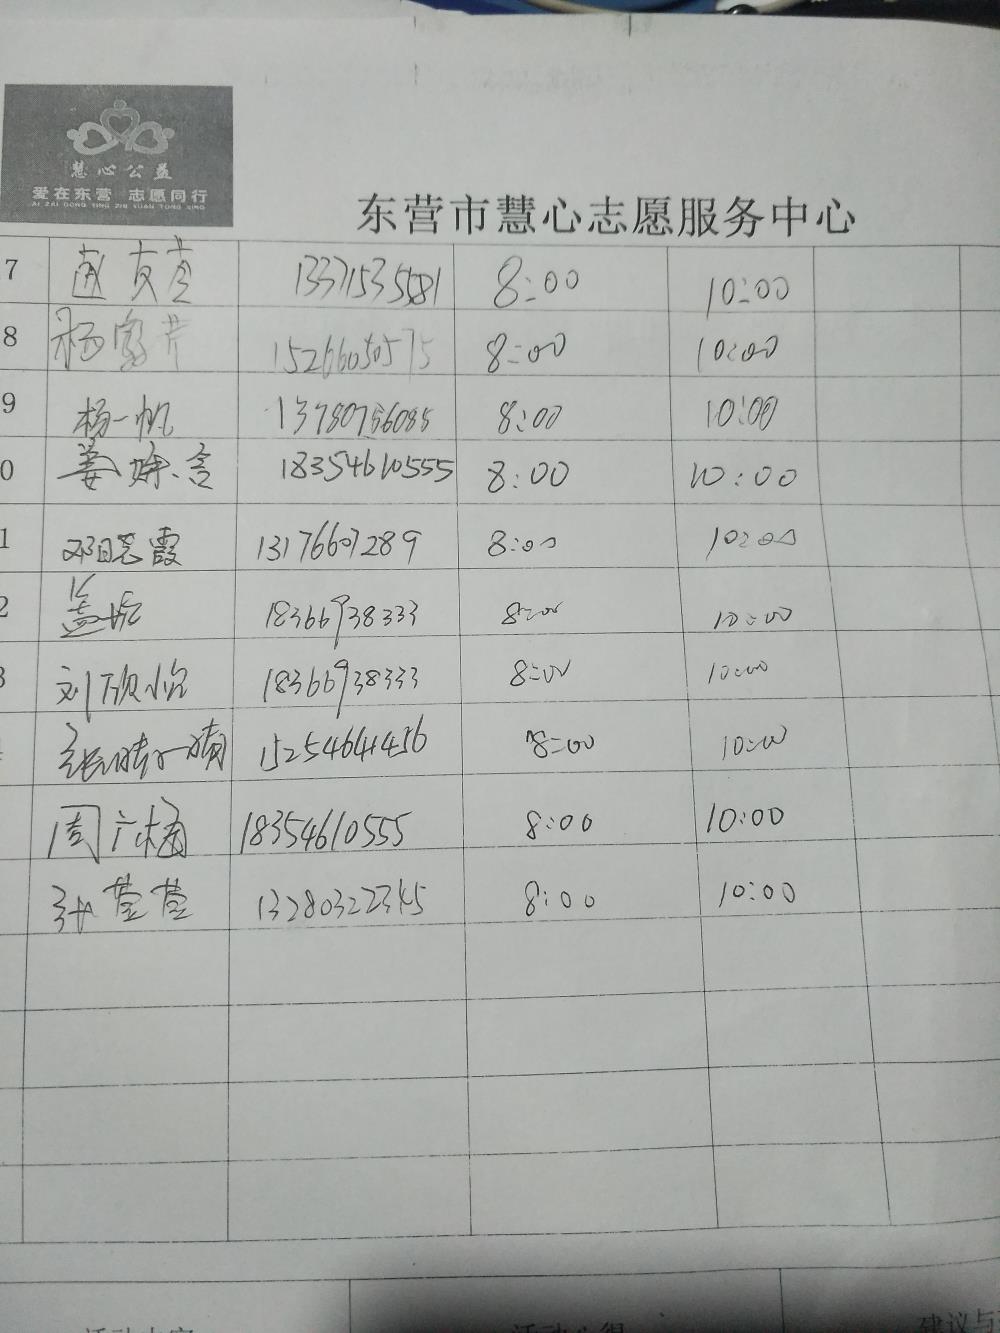 慧心公益
爱在东营 志愿同行
AI ZAI DONG YING ZHI YUAN TONG XING
东营市慧心志愿服务中心
7 赵友彦 13371535681 8:00 10:00
8 杨家芹 15266050575 8:00 10:00
9 杨一帆 13780756085 8:00 10:00
0 姜 言 18354610555 8:00 10:00
1 邓晓霞 13176607289 8:00 10:00
2 盖 18366938333 8:00 10:00
3 刘欣怡 18366938333 8:00 10:00
张晴晴 15254641456 8:00 10:00
周广梅 18354610555 8:00 10:00
孙萱萱 13280322345 8:00 10:00
活动内容 活动心得 建议与